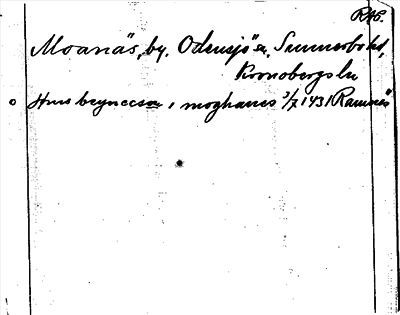 RAP.
Moanäs, by. Odensjö sn, Sunnerbo hd,
Kronobergs ln
Hws beyneccsøn i moghanes 3/7 1431 Ramnäs